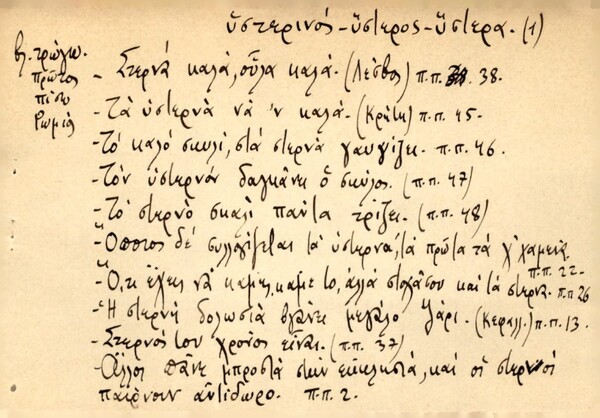 ὑστερινός - ὕστερος - ὕστερα. (1)
βλ. τρώγω.
πρῶτος
πίσω
Ρωμιός
- Στερνά καλά, οὗλα καλά. (Λέσβος) π.π. 38.
- Τὰ ὑστερνὰ νά 'ν καλά. (Κρήτη) π.π. 45.
- Τό καλό σκυλί, στά στερνά γαυγίζει. π.π. 46.
- Τόν ὑστερνόν δαγκάνει ὁ σκύλος. (π.π. 47)
- Τό στερνό σκαλί πάντα τρίζει. (π.π. 48)
- Ὅποιος δέ συλλογιέται τά ὑστερνά, τά πρῶτα τά χ' χαμένα.
π.π. 22.
- Ὅ,τι ἔχεις νά κάμῃς, καμε το, ἀλλά στοχάσου καί τά στερνά. π.π. 26
- Ἡ στερνή δολωσιά βγάνει μεγάλο ψάρι. (Κεφαλλ.) π.π. 13.
- Στερνός του χρόνος εἶναι. (π.π. 37)
- Ἄλλοι πᾶνε μπροστά στήν ἐκκλησιά, καί οἱ στερνοί
παίρνουν ἀντίδωρο. π.π. 2.